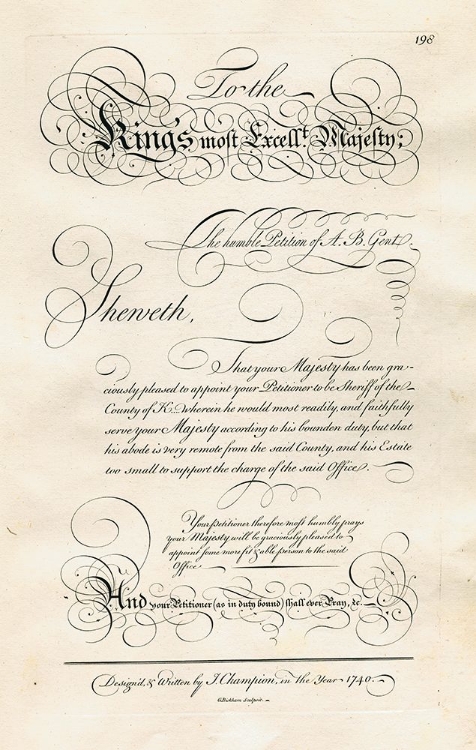 198
To the
King's most Excell.t Majesty;
The humble Petition of A. B. Gent.
Sheweth,
That your Majesty has been gra-
ciously pleased to appoint your Petitioner to be Sheriff of the
County of K. wherein he would most readily, and faithfully
serve your Majesty according to his bounden duty, but that
his abode is very remote from the said County, and his Estate
too small to support the charge of the said Office.
Your Petitioner therefore most humbly prays
your Majesty will be graciously pleased to
appoint some more fit & able person to the said
Office
And your Petitioner (as in duty bound) shall ever Pray, &c.
Design'd, & Written by J. Champion, in the Year 1740.
G. Bickham Sculpsit.